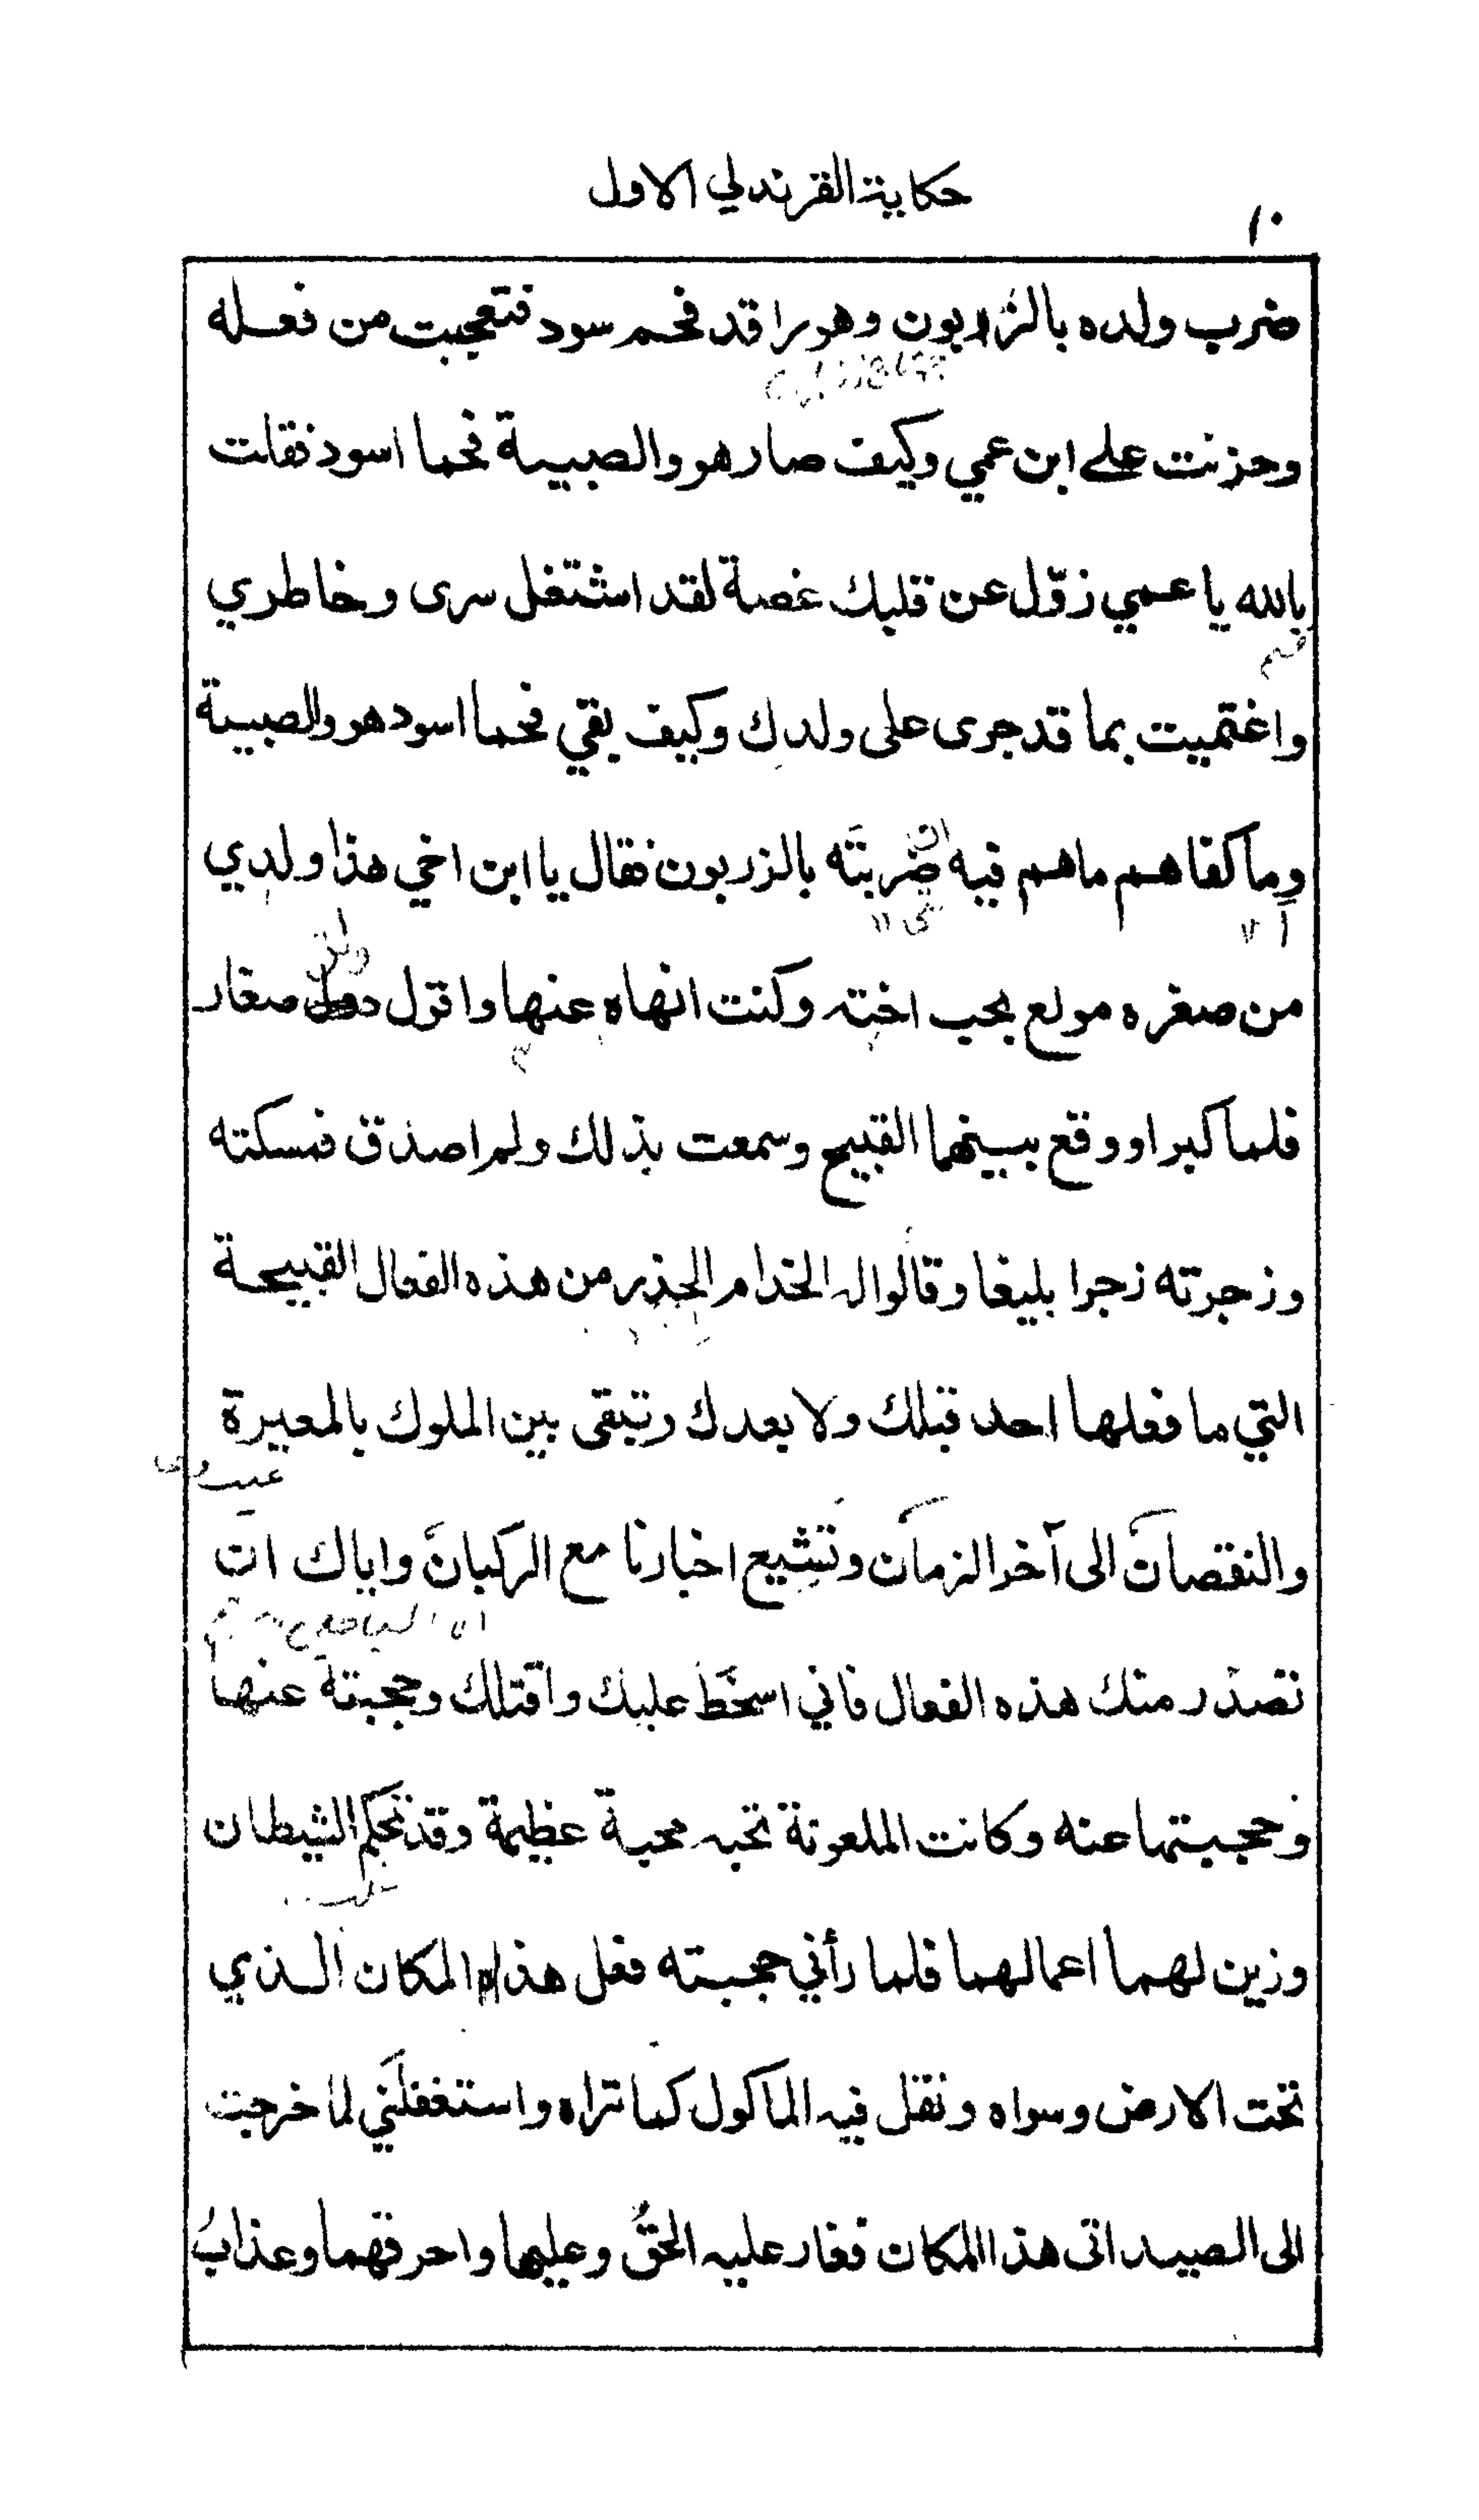 حكاية القرندلي الاول
١٠
ضرب ولده بالزربون وهو راقد فحم سود فتعجبت من فعله
وحزنت على ابن عمي وكيف صار هو والصبية فحما اسود فقلت
بالله يا عمي زوّل عن قلبك غصة لقد اشتغل سرى وخاطري
واغتميت بما قد جرى على ولدك وكيف بقي فحما اسود هو والصبية
وما كفاهم ماهم فيه ضربتَه بالزربون فقال يا ابن اخي هذا ولدي
من صغره مولع بحب اخته وكنت انهاه عنها واقول صغار
فلما كبرا ووقع بينهما القبيح وسمعت بذلك ولم اصدق فمسكته
وزجرته زجرا بليغا وقالوا له الخدام الحذر من هذه الفعال القبيحة
التي ما فعلها احد قبلك ولا بعدك وتبقى بين الملوك بالمعيرة
والنقصان الى آخر الزمان وتشيع اخبارنا مع الركبان واياك ان
تصدر منك هذه الفعال فاني اسخط عليك واقتلك وحجبته عنها
وحجبتها عنه وكانت الملعونة تحبه محبة عظيمة وقد تحكم الشيطان
وزين لهما اعمالهما فلما رأني حجبته فعل هذا المكان الذي
تحت الارض وسواه ونقل فيه الماكول كما تراه واستغفلني لما خرجت
الى الصيد اتى هذا المكان فغار عليه الحقُ وعليها واحرقهما وعذابُ